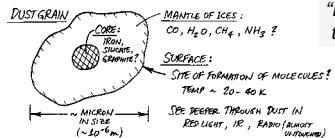 DUST GRAIN
CORE:
IRON,
SILICATE,
GRAPHITE?
MANTLE OF ICES:
CO, H₂O, CH₄, NH₃ ?
SURFACE:
SITE OF FORMATION OF MOLECULES?
TEMP ~ 20-40 K
~ MICRON
IN SIZE
(~10⁻⁶ m)
SEE DEEPER THROUGH DUST IN
RED LIGHT, IR, RADIO (ALMOST
UNTOUCHED)